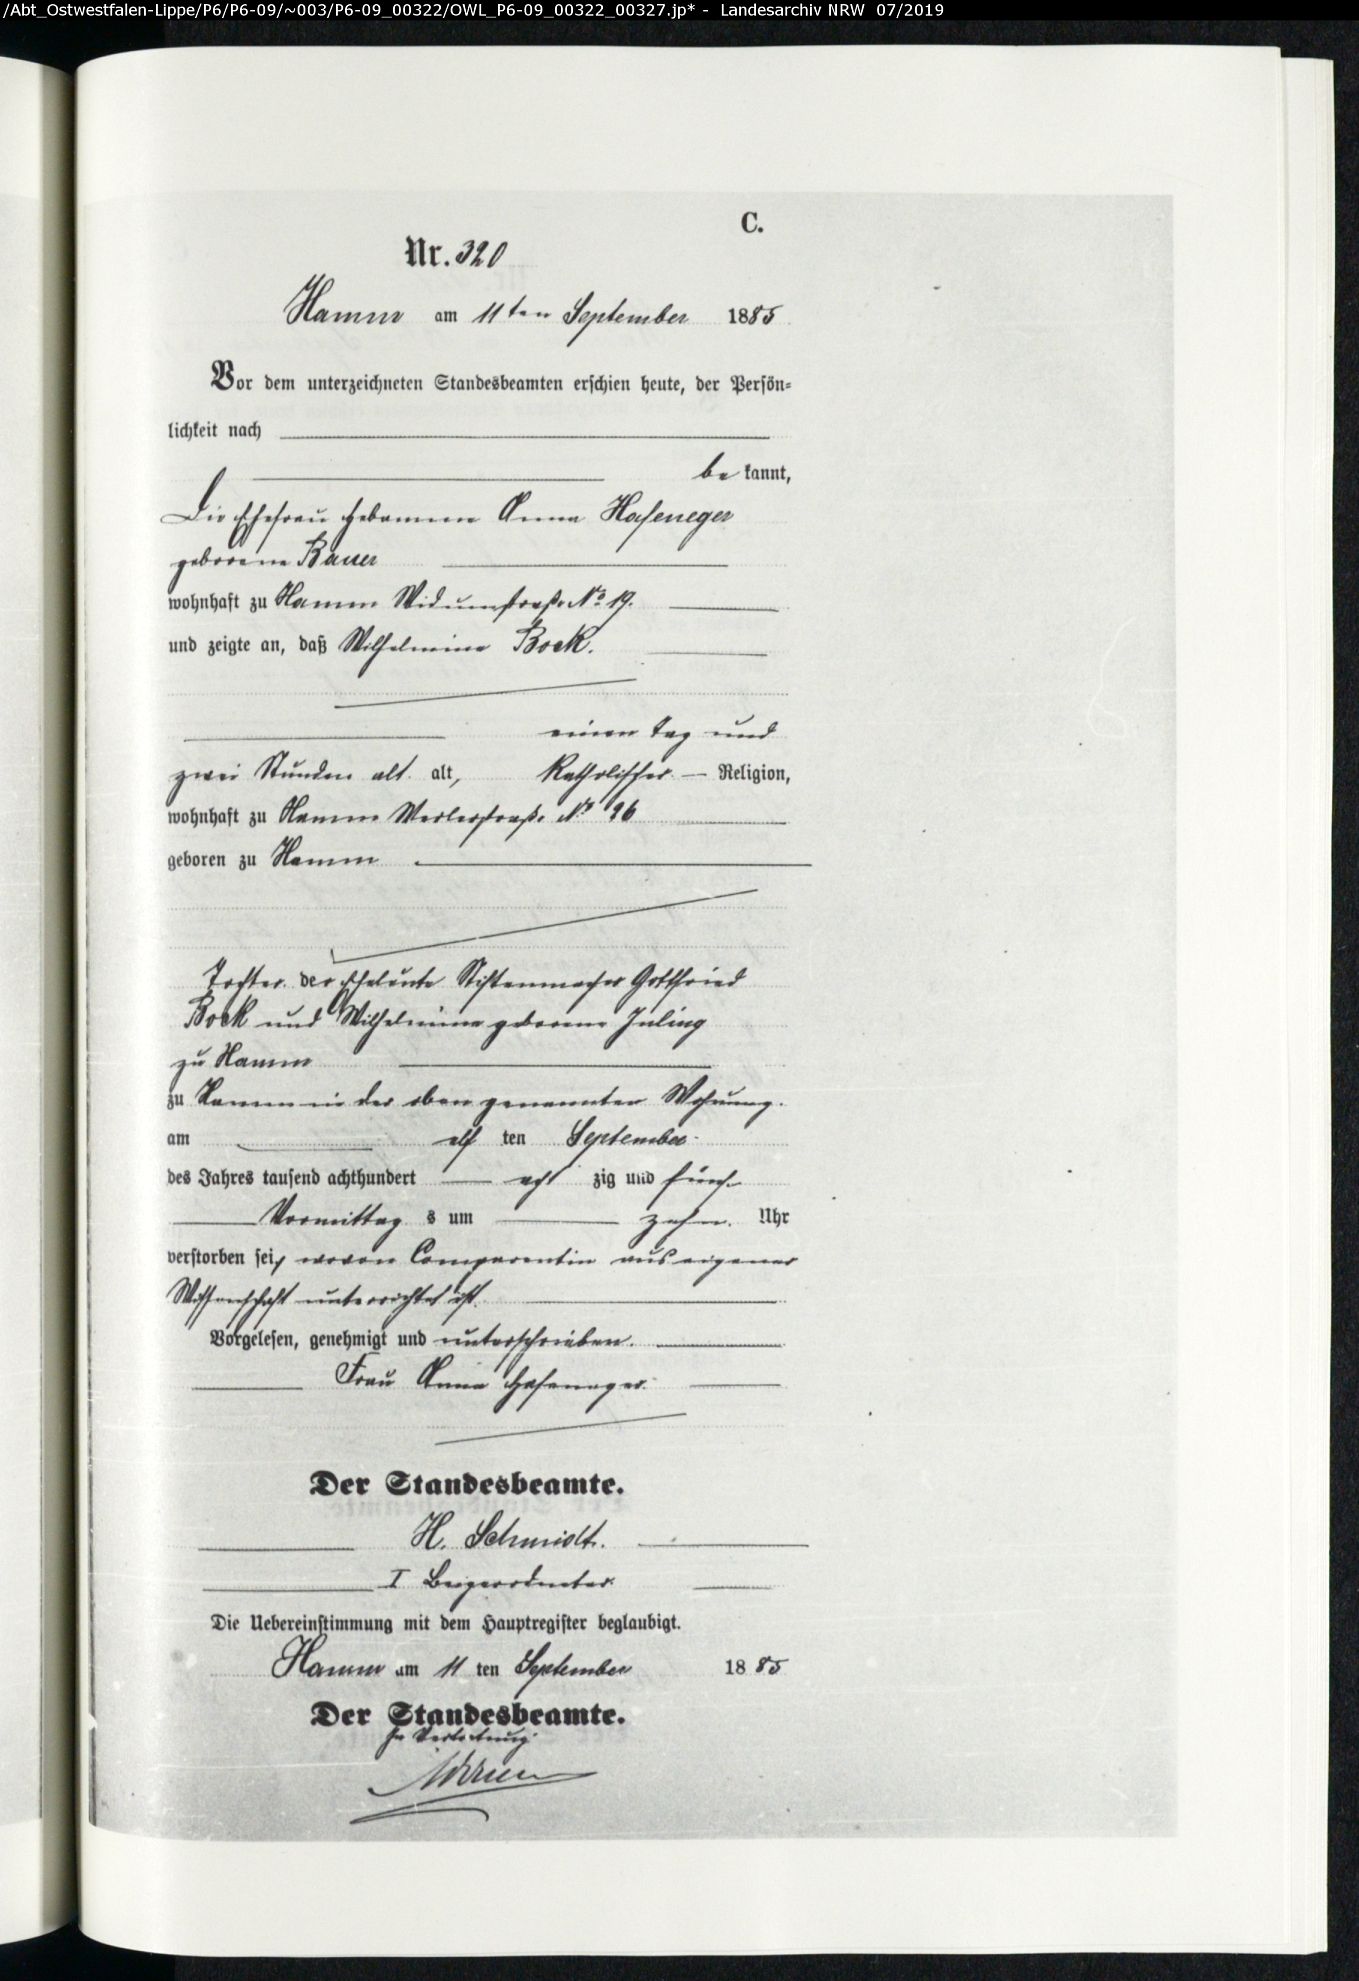 /Abt_Ostwestfalen-Lippe/P6/P6-09/~003/P6-09_00322/OWL_P6-09_00322_00327.jp* - Landesarchiv NRW 07/2019
C.
Nr. 320
Hamm am 11ten September 1885
Vor dem unterzeichneten Standesbeamten erschien heute, der Persön=
lichkeit nach
be kannt,
Die Ehefrau Hebamme Anna Hafeneger
geborene Bauer
wohnhaft zu Hamm Widumstraße No 19.
und zeigte an, daß Wilhelmine Bock.
einen Tag und
zwei Stunden alt alt, Katholischer Religion,
wohnhaft zu Hamm Werlerstraße No
geboren zu Hamm
Tochter der Eheleute Gottfried
Bock und Wilhelmine geborene Juling
zu Hamm
zu Hamm in der oben genannten Wohnung.
am elf ten September
des Jahres tausend achthundert acht zig und fünf
Vormittag s um zehn Uhr
verstorben sei, wovon Comparentin aus eigener
Wissenschaft unterrichtet ist.
Vorgelesen, genehmigt und unterschrieben.
Frau Anna Hafeneger.
Der Standesbeamte.
H. Schmidt.
I Beigeordneter.
Die Uebereinstimmung mit dem Hauptregister beglaubigt.
Hamm am 11 ten September 1885
Der Standesbeamte.
In Vertretung